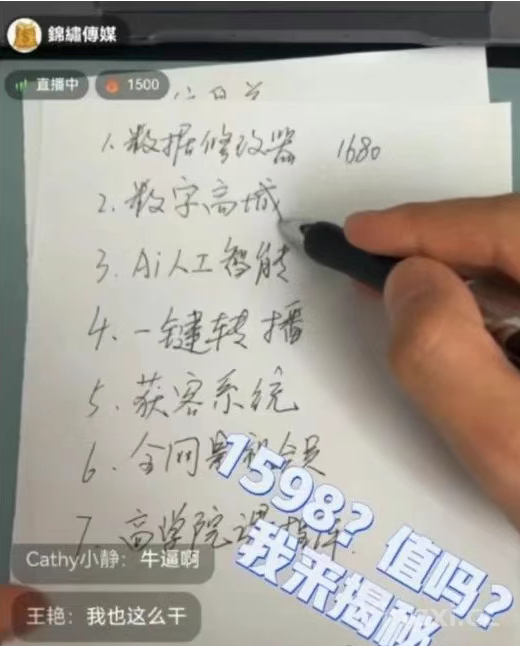 錦繡傳媒
直播中
1500
1. 数据修改器 1680
2. 数字商城
3. Ai人工智能
4. 一键转播
5. 获客系统
6. 全网影视会员
7. 商学院课
1598？值吗？
我来揭秘
Cathy小静：牛逼啊
王艳：我也这么干